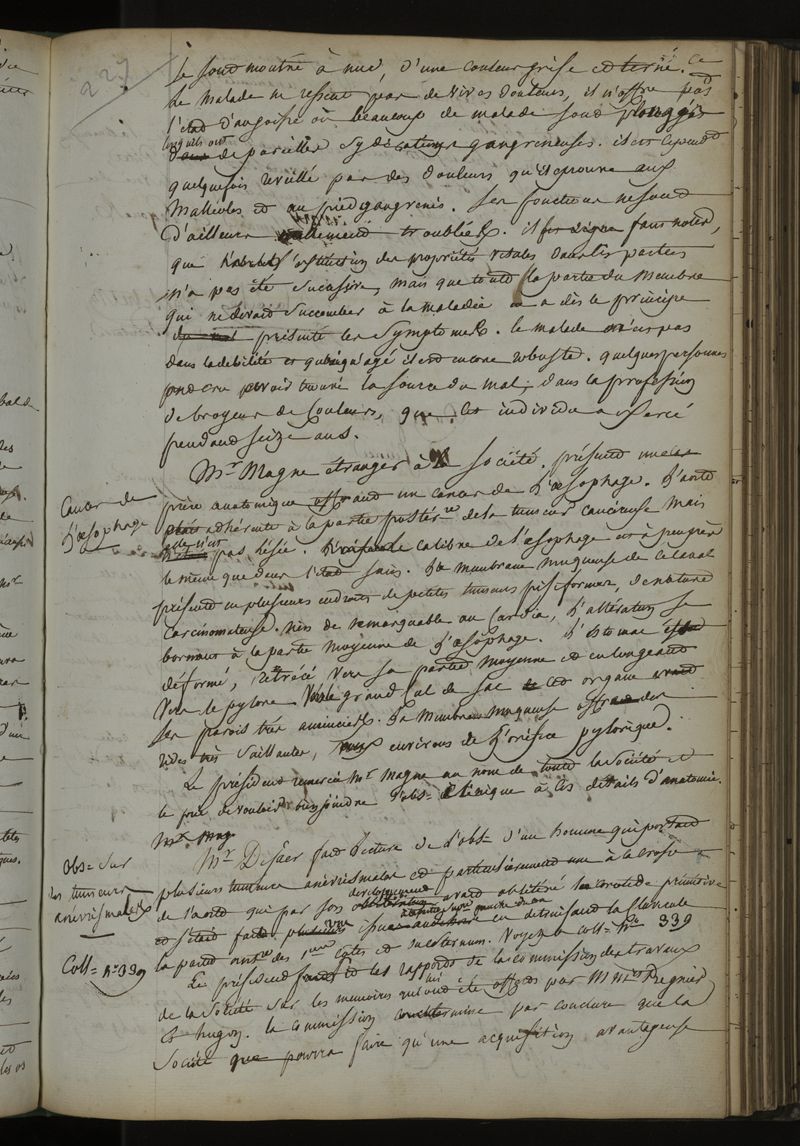 227
se sont montré à nud, d'une couleur grise et terne. Ce
le malade ne ressent pas de vives douleurs, il n'offre pas
l'etat d'angoisse où beaucoup de malade sont plongés
lorsqu'ils ont
de pareilles gangreneuses. il est cepend^t
quelquefois reveillé par des douleurs qu'il eprouve aux
Malleoles et au pied gangrenés. Ses fonctions ne sont
d'ailleurs nullement troublées. il faut noter,
que l'extinction des propriétés vitales dans les parties
n'a pas été successive, mais que toute la partie du Membre
qui devait succomber à la maladie en a dès le principe
présenté les symptomes. le malade n'est pas
dans la debilité et quoiqu'agé il est encore robuste. quelques personnes
ont cru avoir trouvé la source du mal, dans la profession
de broyeur de Couleurs, que cet individu a exercé
pendant seize ans.
Cancer de
l'œsophage
M^r Magne étranger à la Société, présente une
pièce anatomique offrant un cancer de l'œsophage. L'aorte
etait adhérente à la partie postér^re de la tumeur cancéreuse mais
elle n'est
pas lésée. le calibre de l'œsophage est à peu près
le même que dans l'état sain. La membrane muqueuse de ce canal
présente en plusieurs endroits de petites tumeurs pisiformes, de nature
Carcinomateuse. rien de remarquable au Cardia, l'altération se
bornant à la partie moyenne de l'œsophage. L'estomac est
déformé, rétrécé vers sa partie moyenne et en longeant
vers le pylore le grand cul de sac de cet organe avait
ses parois très amincies. La Membrane muqueuse offrait des
rides très saillantes, aux environs de l'orifice pylorique.
Le président remercie M^r Magne au nom de toute la Société et
le prie de vouloir bien joindre l'obs= Clinique à ces détails d'anatomie.
M^r Mag
Obs= sur
les tumeurs
anévrismales
Coll= N° 339
M^r fait lecture de l'obs^n d'un homme qui portait
plusieurs tumeurs anévrismales et particulièrement une à la crosse
de l'aorte qui par son
développement
avait oblitéré la carotide primitive
et s'était fait issue en détruisant la clavicule
la partie ant^re des 1^eres côtes et du sternum. Voyez la coll= N° 339
Le président fait les rapports de la commission des travaux
de la Société sur les memoires qui lui ont été offerts par M M^rs Regnier
et hugon. la Commission termine par conclure que la
Société pourra faire qu'une acquisition avantageuse